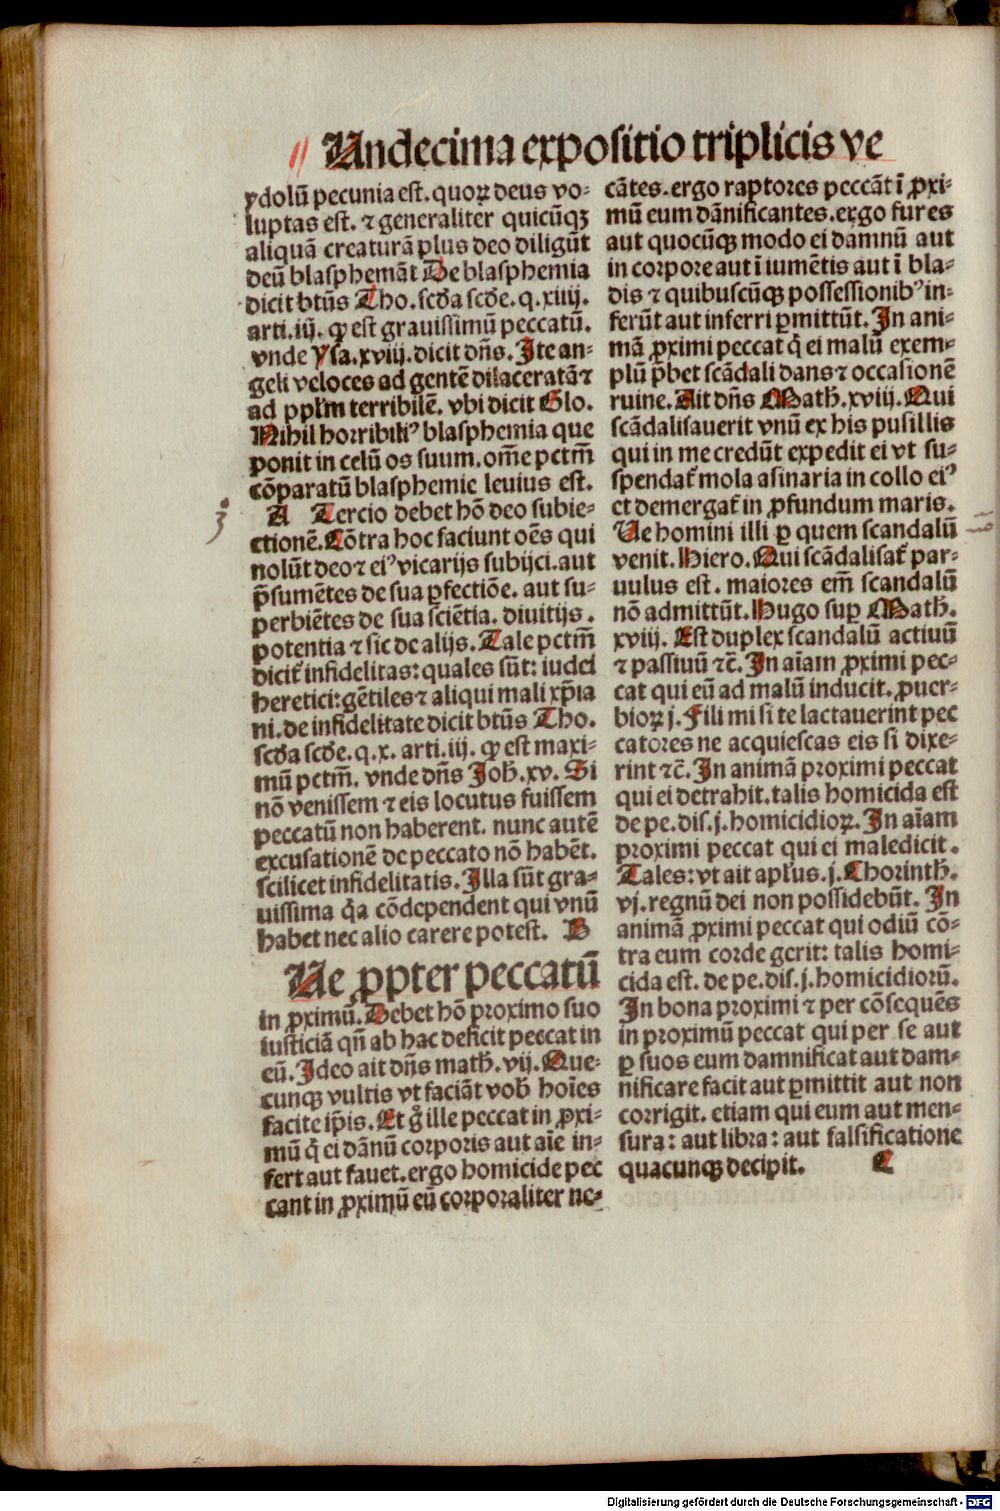 Undecima expositio triplicis ve
ydolū pecunia est. quoꝝ deus vo-
luptas est. ⁊ generaliter quicūqꝫ
aliquā creaturā plus deo diligūt
deū blasphemāt De blasphemia
dicit btūs Tho. scd̄a scd̄e. q. xiij.
arti. iij. ꝙ est grauissimū peccatū.
vnde Ysa. xviij. dicit dn̄s. Ite an-
geli veloces ad gentē dilaceratā ⁊
ad ppl'm terribilē. vbi dicit Glo.
Nihil horribiliꝰ blasphemia que
ponit in celū os suum. om̄e pctm̄
cōparatū blasphemie leuius est.
A Tercio debet hō deo subie-
ctionē. Cōtra hoc faciunt oēs qui
nolūt deo ⁊ eiꝰ vicarijs subijci. aut
p̄sumētes de sua ꝑfectiōe. aut su-
perbiētes de sua sciētia. diuitijs.
potentia ⁊ sic de alijs. Tale pctm̄
dicit᷑ infidelitas: quales sūt: iudei
heretici: gētiles ⁊ aliqui mali xp̄ia
ni. de infidelitate dicit btūs Tho.
scd̄a scd̄e. q. x. arti. iij. ꝙ est maxi-
mū pctm̄. vnde dn̄s Joh̄. xv. Si
nō venissem ⁊ eis locutus fuissem
peccatū non haberent. nunc autē
excusationē de peccato nō habēt.
scilicet infidelitatis. Illa sūt gra-
uissima q̄a cōdependent qui vnū
habet nec alio carere potest. B
Ue ꝓpter peccatū
in ꝓximū. Debet hō proximo suo
iusticiā qn̄ ab hac deficit peccat in
eū. Ideo ait dn̄s math̄. vij. Que-
cunqꝫ vultis vt faciāt vob̄ hoīes
facite ip̄is. Et g̊ ille peccat in ꝓxi-
mū q̇ ei dānū corporis aut aīe in-
fert aut fauet. ergo homicide pec
cant in ꝓximū eū corporaliter ne-
cātes. ergo raptores peccāt ī ꝓxi-
mū eum dānificantes. ergo fures
aut quocūqꝫ modo ei damnū aut
in corpore aut ī iumētis aut ī bla-
dis ⁊ quibuscūqꝫ possessionibꝰ in-
ferūt aut inferri ꝑmittūt. In ani-
mā ꝓximi peccat q̇ ei malū exem-
plū p̄bet scādali dans ⁊ occasionē
ruine. Ait dn̄s Math̄. xviij. Qui
scādalisauerit vnū ex his pusillis
qui in me credūt expedit ei vt su-
spendat᷑ mola asinaria in collo eiꝰ
et demergat᷑ in ꝓfundum maris.
Ue homini illi ꝑ quem scandalū
venit. Hiero. Qui scādalisat᷑ par-
uulus est. maiores em̄ scandalū
nō admittūt. Hugo suꝑ Math̄.
xviij. Est duplex scandalū actiuū
⁊ passiuū ⁊c̄. In aīam ꝓximi pec-
cat qui eū ad malū inducit. ꝓuer-
bioꝝ j. Fili mi si te lactauerint pec
catores ne acquiescas eis si dixe-
rint ⁊c̄. In animā proximi peccat
qui ei detrahit. talis homicida est
de pe. dis. j. homicidioꝝ. In aīam
proximi peccat qui ei maledicit.
Tales: vt ait apl'us. j. Chorinth̄.
vj. regnū dei non possidebūt. In
animā ꝓximi peccat qui odiū cō-
tra eum corde gerit: talis homi-
cida est. de pe. dis. j. homicidiorū.
In bona proximi ⁊ per cōsequēs
in proximū peccat qui per se aut
ꝑ suos eum damnificat aut dam-
nificare facit aut ꝑmittit aut non
corrigit. etiam qui eum aut men-
sura: aut libra: aut falsificatione
quacunqꝫ decipit. C
Digitalisierung gefördert durch die Deutsche Forschungsgemeinschaft - DFG